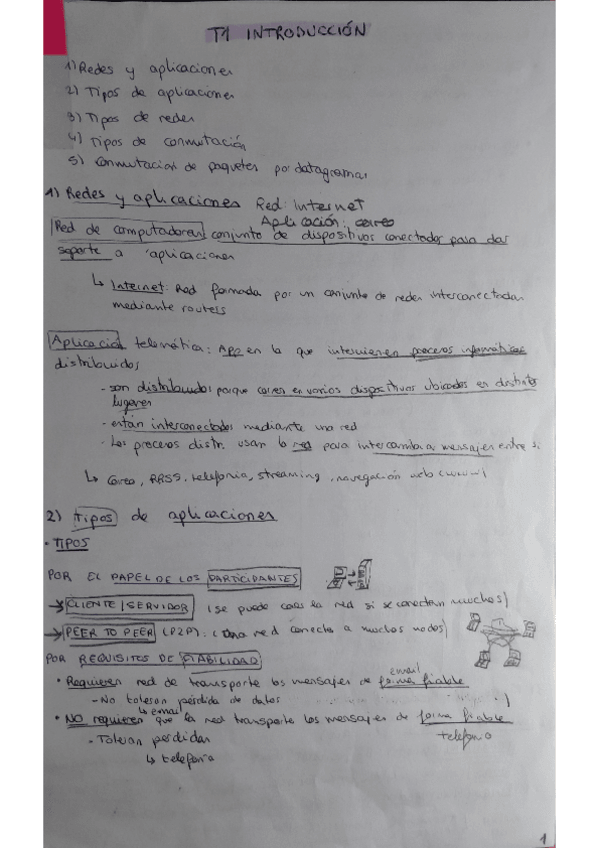 T1 INTRODUCCIÓN
1) Redes y aplicaciones
2) Tipos de aplicaciones
3) Tipos de redes
4) Tipos de conmutación
5) Conmutacion de paquetes por datagramas
1) Redes y aplicaciones Red: Internet
Aplicación: correo
Red de computadores: conjunto de dispositivos conectados para dar
soporte a aplicaciones
↳ Internet: Red formada por un conjunto de redes interconectadas
mediante routers
Aplicación telemática: App en la que intervienen procesos informáticos
distribuidos
- son distribuidos porque corren en varios dispositivos ubicados en distintos
lugares
- están interconectados mediante una red
- Los procesos distr. usan la red para intercambiar mensajes entre si
↳ Correo, RRSS, telefonia, streaming, navegación web (www)
2) Tipos de aplicaciones
• TIPOS
POR EL PAPEL DE LOS PARTICIPANTES
→ CLIENTE/SERVIDOR (se puede caer la red si se conectan muchos)
→ PEER TO PEER (P2P): (una red conecta a muchos nodos)
POR REQUISITOS DE FIABILIDAD
email
• Requieren red de transporte los mensajes de forma fiable
- No toleran pérdida de datos
↳ email
• NO requieren que la red transporte los mensajes de forma fiable
telefonia
- Toleran perdidas
↳ telefonia
1